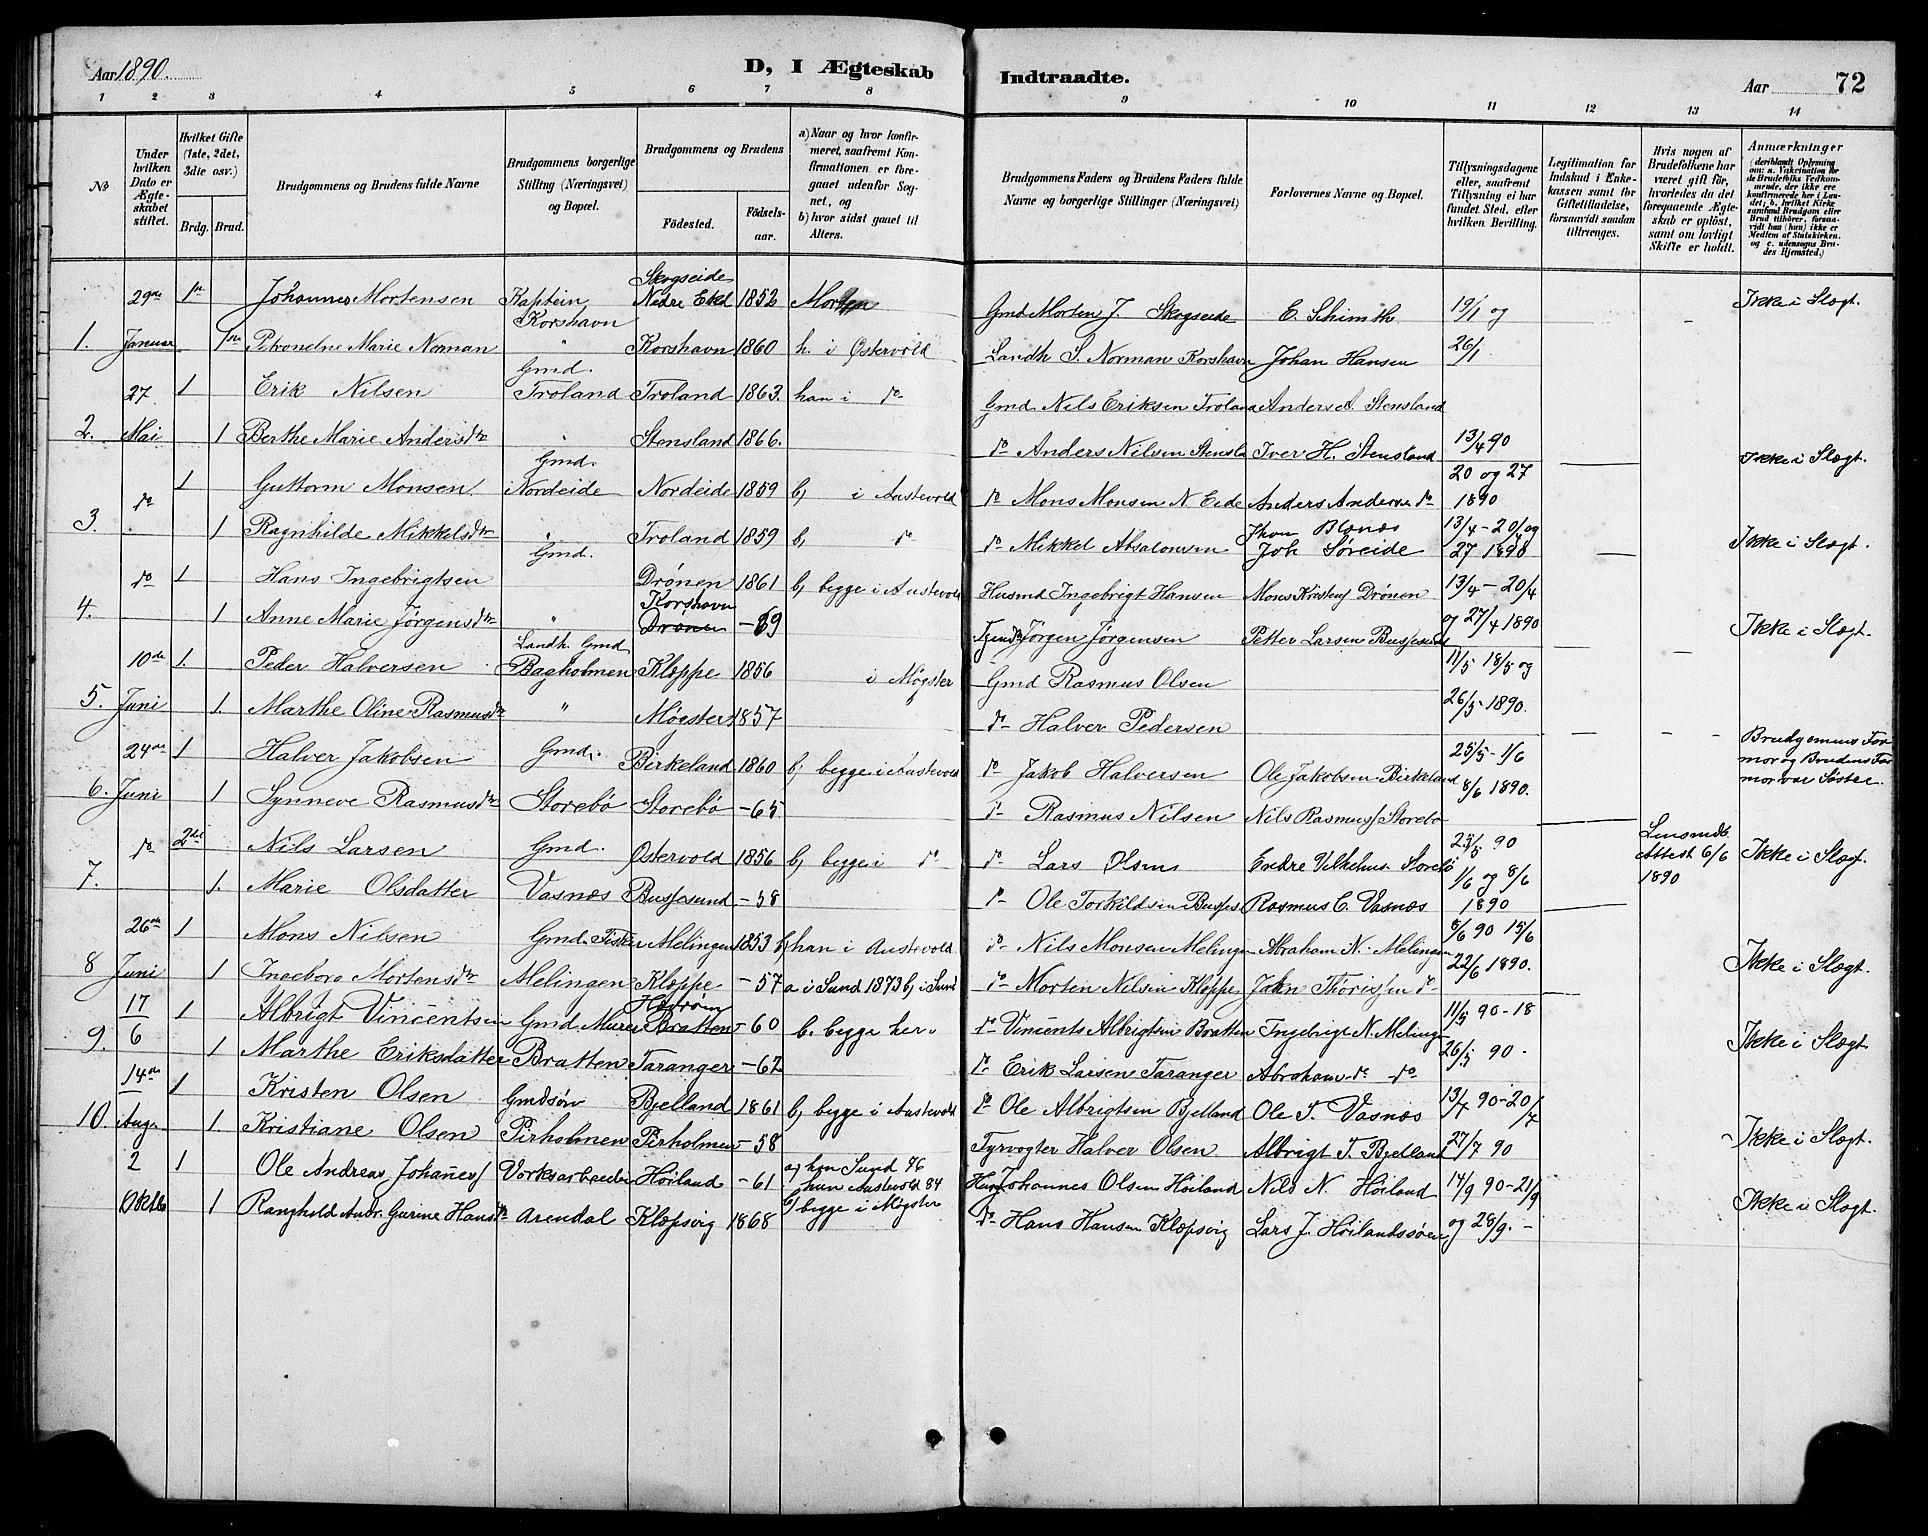 Aar 1890.
D, I Ægteskab Indtraadte.
Aar
72
1 2 3 4 5 6 7 8 9 10 11 12 13 14
No
Under hvilken Dato er Ægteskabet stiftet.
Hvilket Gifte (1ste, 2det, 3die osv.)
Brdg. Brud.
Brudgommens og Brudens fulde Navne
Brudgommens borgerlige Stilling (Næringsvei) og Bopæl.
Brudgommens og Brudens
Fødested.
Fødselsaar.
a) Naar og hvor konfirmeret, saafremt Konfirmationen er foregaaet udenfor Sognet, og
b) hvor sidst gaaet til Alters.
Brudgommens Faders og Brudens Faders fulde Navne og borgerlige Stillinger (Næringsvei)
Forlovernes Navne og Bopæl.
Tillysningsdagene eller, saafremt Tillysning ei har fundet Sted, efter hvilken Bevilling.
Legitimation for Indskud i Enkekassen samt for Giftetilladelse, forsaavidt saadan tiltrænges.
Hvis nogen af Brudefolkene har været gift før, hvorledes da det foregaaende Ægteskab er opløst, samt om lovligt Skifte er holdt.
Anmærkninger (deriblandt Oplysning om: a. Vakcination for de Brudefolks Vedkommende, der ikke ere konfirmerede her i Landet; b. hvilket Kirkesamfund Brudgom eller Brud tilhører, forsaavidt han (hun) ikke er Medlem af Statskirken, og c. udensogns Brudes Hjemsted.)
29de 1ste Johannes Mortensen Kaptein Korshavn Skogseide Nedre Eked 1852 Gmd Morten J. Skogseide E. Schimth 19/1 og Ikke i Slægt.
1. Januar 1ste Petronelne Marie Norman " Korshavn 1860 h. i Østervold Landh S. Norman Korshavn Johan Hansen 26/1
27 1 Erik Nilsen Gmd. Troland Troland 1863. han i do Gmd. Nils Eriksen Troland Anders A. Stensland
2. Mai 1 Berthe Marie Andersdtr " Stensland 1866. do Anders Nilsen Stensla Iver H. Stensland 13/4 90 Ikke i Slægt.
do 1 Guttorm Monsen Gmd. Nordeide Nordeide 1859 b, i Austevold do Mons Monsen N Eide Anders Andersen do 20 og 27 1890
3. 1 Ragnhilde Mikkelsdtr " Troland 1859 b, do do Mikkel Absalonsen Joh Søreide 13/4 - 20/4 og 27 1890 Ikke i Slægt.
do 1 Hans Ingebrigtsen Gmd. Drønen 1861 b, begge i Austevold Husmd Ingebrigt Hansen Mons Kristens Drønen 13/4 - 20/4
4. 1 Anne Marie Jørgensdtr " Korshavn Drønen - 69 Jørgen Jørgensen Petter Larsen Bussesund og 27/4 1890 Ikke i Slægt.
10de 1. Peder Halversen Landh. Gmd Bagholmen Kloppe 1856 i Møgster Gmd Rasmus Olsen 11/5 18/5 og
5. Juni 1. Marthe Oline Rasmusdtr " Møgster 1857 do Halver Pedersen 26/5 - 1890.
24de 1 Halver Jakobsen Gmd. Birkeland 1860 b, begge i Austevold do Jakob Halversen Ole Jakobsen Birkeland 25/5 - 1/6 Brudgomens Formor og Brudens Formor var Søstre.
6. Juni 1 Synneve Rasmusdtr Storebø Storebø - 65 do Rasmus Nilsen Nils Rasmuss Storebø 8/6 1890.
do 2det Nils Larsen Gmd. Østervold 1856 b, begge i do do Lars Olsens Endre Vilhelms Storebø 25/5 90 Lensmdts. Attest 6/6 1890 Ikke i Slægt.
7. 1. Marie Olsdatter Vasnæs Bussesund - 58 do Ole Torkildsen Busses Rasmus C. Vasnæs 1/6 og 8/6 1890
26de 1 Mons Nilsen Gmd. Fisker Melingen 1853 b, han i Austevold. do Nils Monsen Melingen Abraham N. Melingen 8/6 90 15/6
8 Juni 1 Ingeborg Mortensdtr Melingen Kloppe - 57 a i Sund 1873 b, i Sund do Morten Nilsen Kloppe John Thorissen do 22/6 1890. Ikke i Slægt.
17 1 Albrigt Vincentsen Gmd. Murer Bratten - 60 b. begge her. do Vincents Albrigtsen Bratten Ingebrigt N. Melingn 11/5 90 - 18
9. 6 1 Marthe Eriksdatter Bratten Taranger - 62 do Erik Larsen Taranger Abraham do do 26/5 90 - Ikke i Slægt.
14de 1 Kristen Olsen Gmdsøn Bjelland 1861 b, begge i Austevold do Ole Albrigtsen Bjelland Ole S. Vasnæs 13/7 90 - 20/7
10. Aug. 1 Kristiane Olsen Pirholmen Pirholmen - 58 Fyrvogter Halver Olsen Albrigt T. Bjelland 27/7 90 Ikke i Slægt.
2 1 Ole Andreas Johannes Høiland - 61 a, han Sund 76 hun Austevold 84 Johannes Olsen Høiland Nils N. Høiland 14/9 90 - 21/9
Oktb 1 Ranghild Andr. Gurine Hansdtr Arendal Klepsvig 1868 b, begge i Møgster do Hans Hansen Klepsvig Lars J. Høilandssøen og 28/9. - Ikke i Slægt.